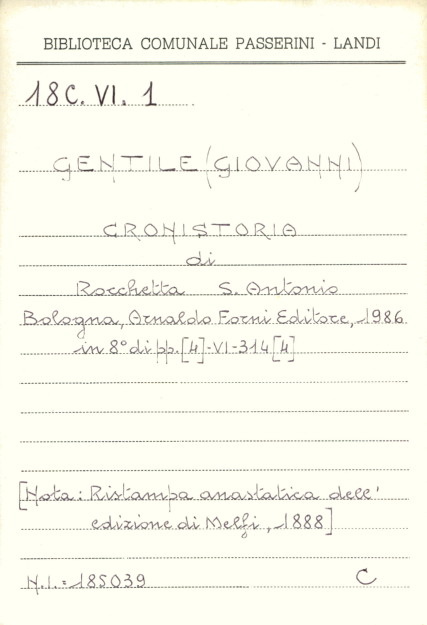 BIBLIOTECA COMUNALE PASSERINI - LANDI
18C. VI. 1
GENTILE (GIOVANNI)
CRONISTORIA
di
Rocchetta S. Antonio
Bologna, Arnaldo Forni Editore, 1986
in 8° di pp. [4]-VI-314[4]
[Nota: Ristampa anastatica dell'
edizione di Melfi, 1888]
N.I. = 185039 C